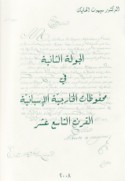 الدكتور سيمون الحايك
الجولة الثانية
في
محفوظات الخارجية الإسبانية
القرن التاسع عشر
٢٠٠٨